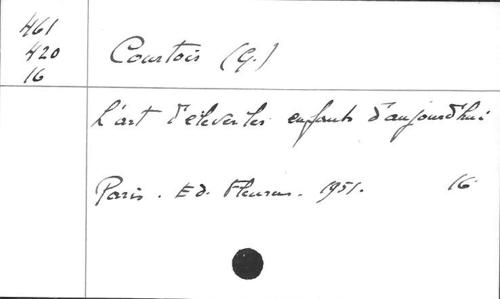 461
420
16
Courtois (G.)
L'art d'élever les enfants d'aujourd'hui
Paris. Ed. Fleurus. 1951. 16